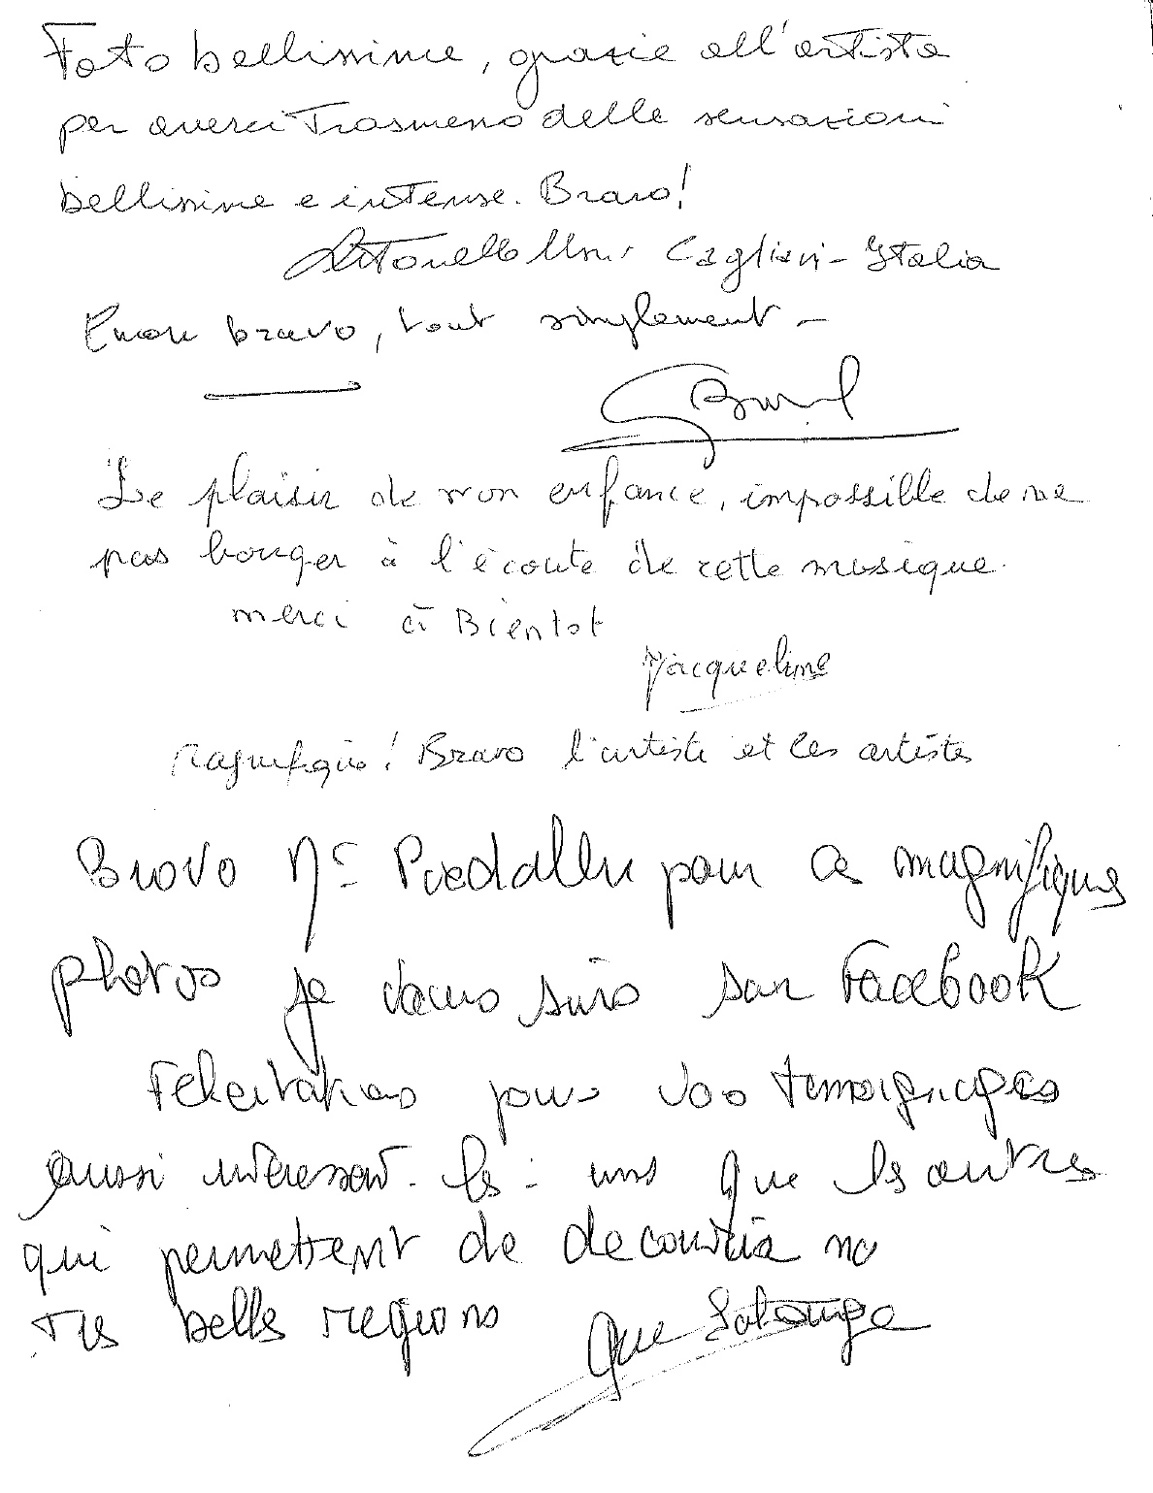 Foto bellissime, grazie all'artista
per averci Trasmesso delle sensazioni
bellissime e intense. Bravo!
Antonello Cagliari - Italia
Encore bravo, tout simplement -
Le plaisir de mon enfance, impossible de ne
pas bouger à l'écoute de cette musique.
merci à Bientot
Jacqueline
Magnifique! Bravo l'artiste et les artistes
Bravo Mr pour ces magnifiques
photos je vous suis sur Facebook
Felicitations pour vos temoignages
aussi interessant les uns que les autres
qui permettent de decouvrir no
tres belles regions